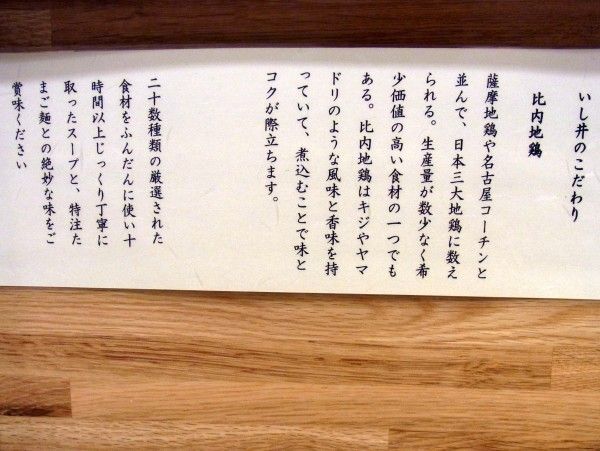 いし井のこだわり
比内地鶏
薩摩地鶏や名古屋コーチンと
並んで、日本三大地鶏に数え
られる。生産量が数少なく希
少価値の高い食材の一つでも
ある。比内地鶏はキジやヤマ
ドリのような風味と香味を持
っていて、煮込むことで味と
コクが際立ちます。
二十数種類の厳選された
食材をふんだんに使い十
時間以上じっくり丁寧に
取ったスープと、特注た
まご麺との絶妙な味をご
賞味ください